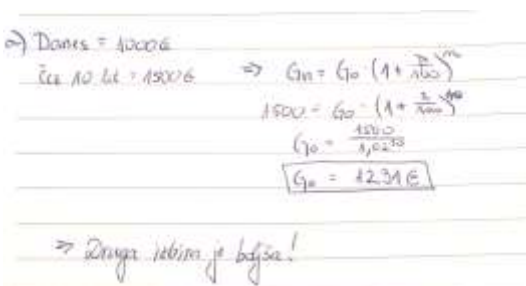 a) Danes = 1000€
Čez 10 let = 1500€ ⇒ Gn = G₀ (1 + p/100)ⁿ
1500 = G₀ · (1 + 2/100)¹⁰
G₀ = 1500/1,02¹⁰
G₀ = 1231€
⇒ Druga izbira je boljša!